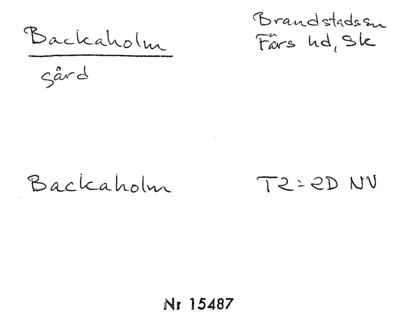 Backaholm
Brandstads sn
Färs hd, Sk
gård
Backaholm
T2:2D NV
Nr 15487